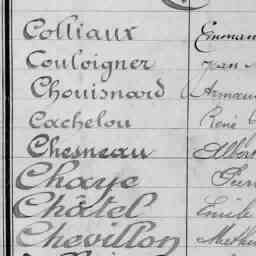 Colliaux Emman
Couloigner Jean
Chouisnard Armand
Cachelou René
Chesneau Albert
Chaye
Châtel Emile
Chevillon Mathu